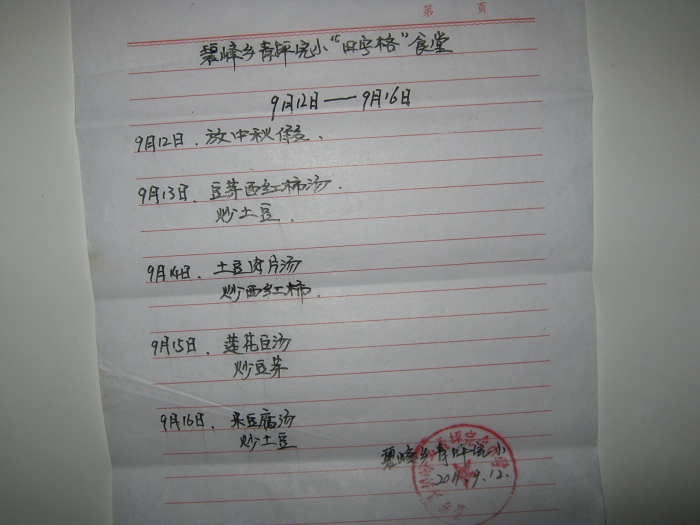 第 页
碧峰乡青坪完小“田字格”食堂
9月12日——9月16日
9月12日、放中秋假、
9月13日、豆芽西红柿汤、
炒土豆、
9月14日、土豆肉片汤
炒西红柿、
9月15日、莲花白汤
炒豆芽
9月16日、米豆腐汤
炒土豆
碧峰乡青坪完小
2011.9.12.